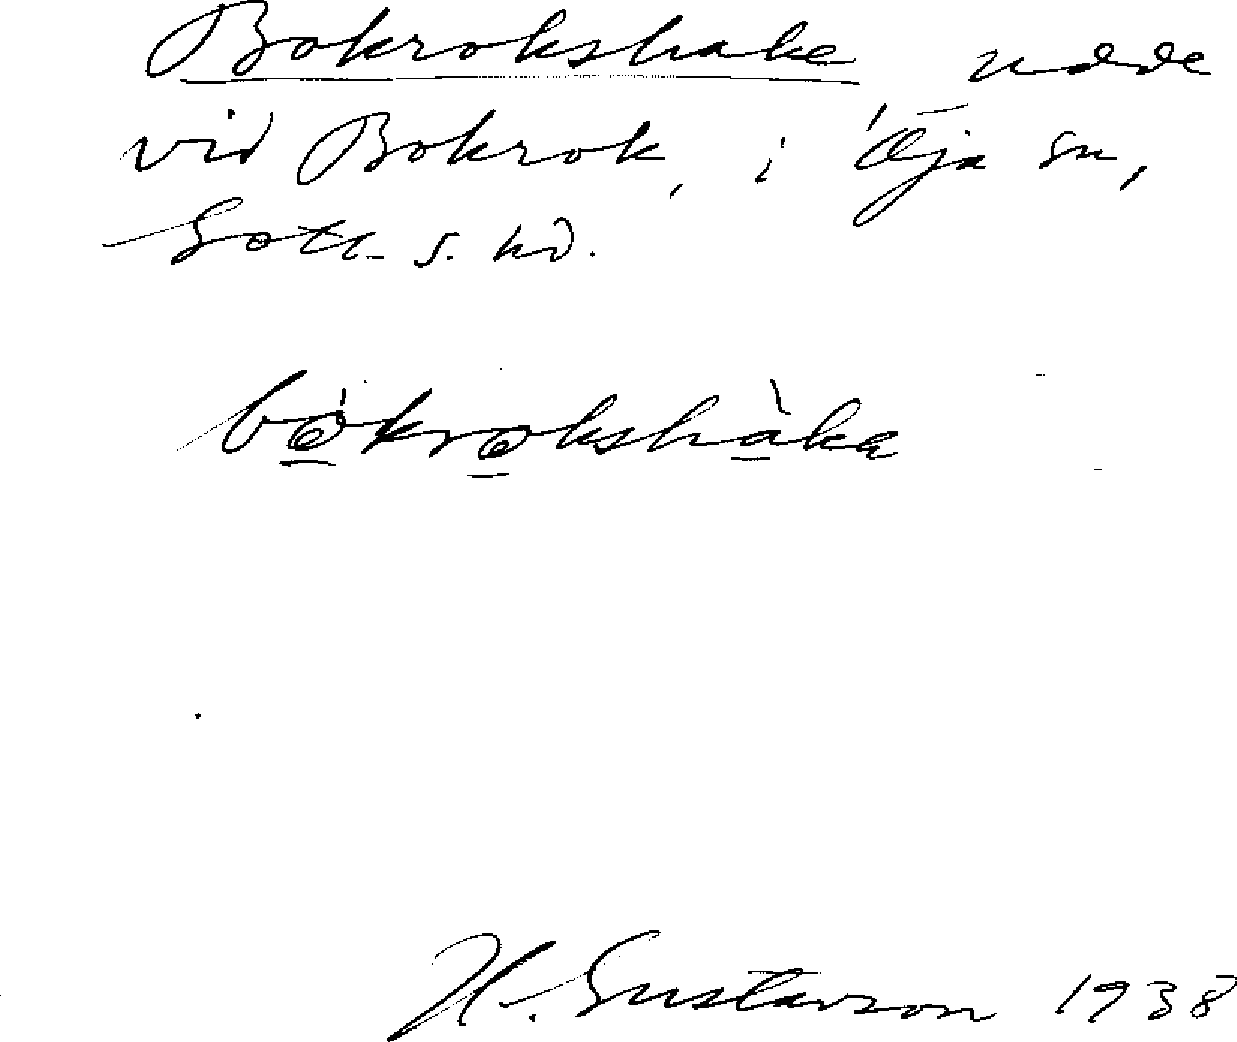 Bokrokshake udde
vid Bokrok, i Öja sn,
Gotl. s. hd.
bo̱kro̱kshà̱ka
H. Gustavson 1938